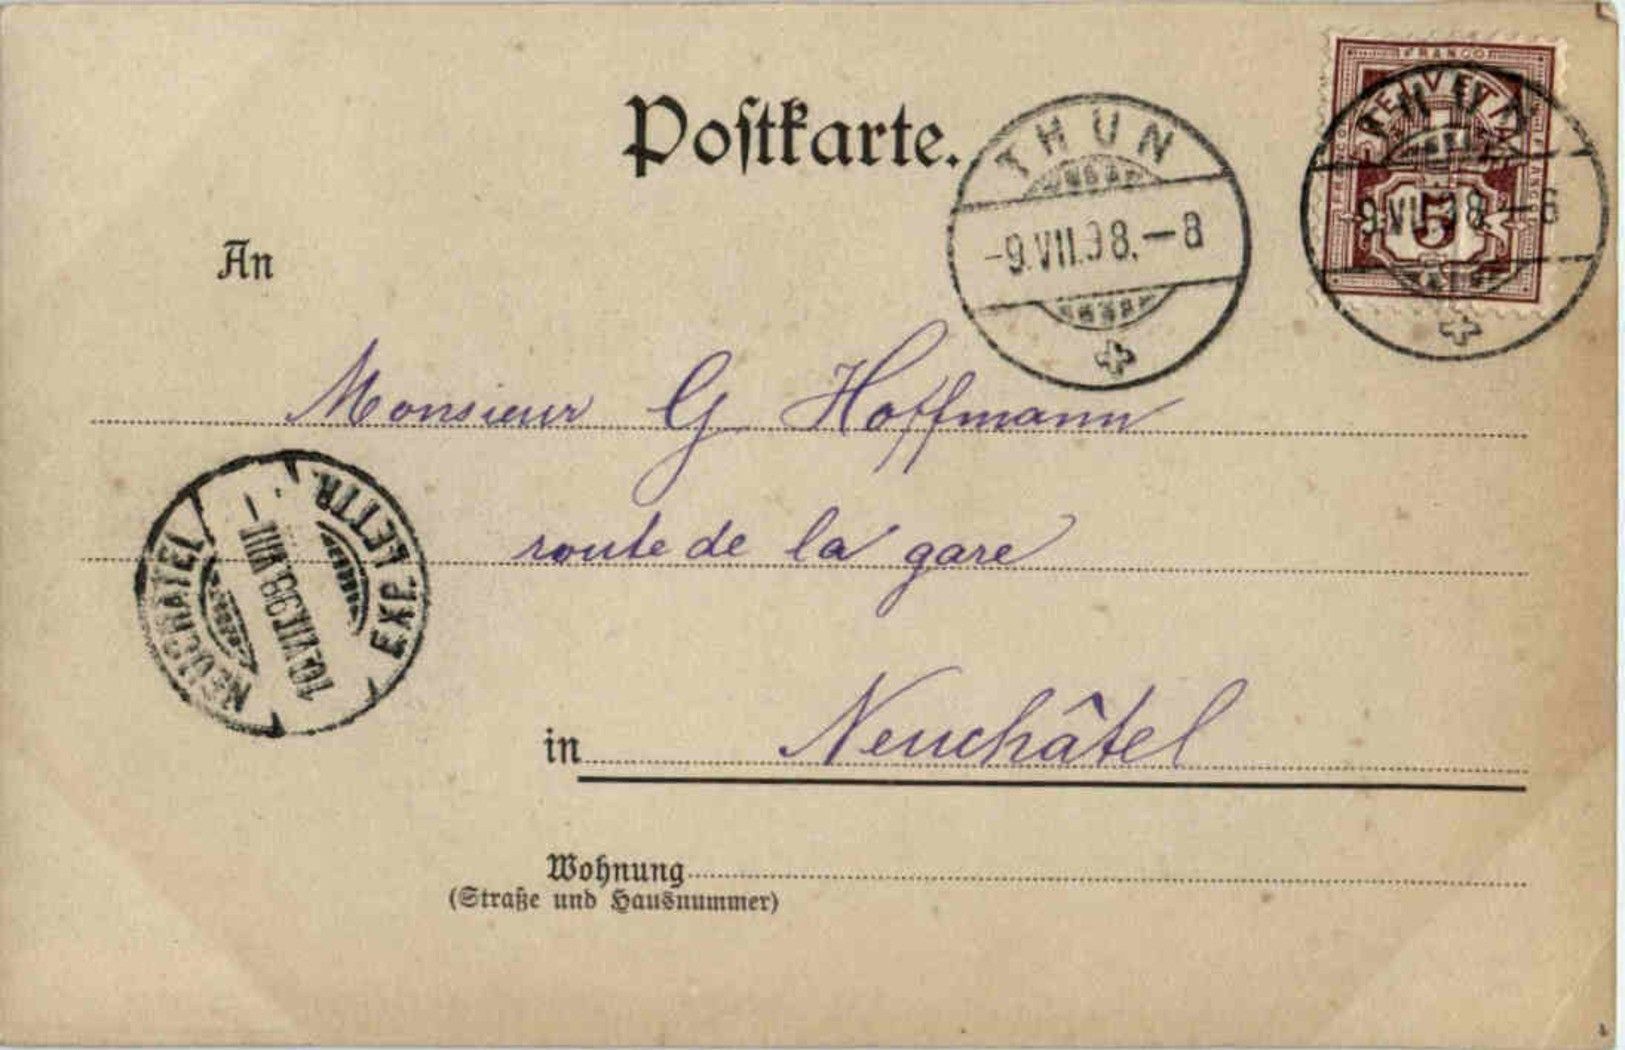 Postkarte.
THUN
-9.VII.98.-8
FRANCO
HELVETIA
5
THUN
9.VII.98.-8
An
Monsieur G Hoffmann
route de la gare
NEUCHATEL
10.VII.98.VIII-
EXP. LETTR.
in Neuchâtel
Wohnung
(Straße und Hausnummer)